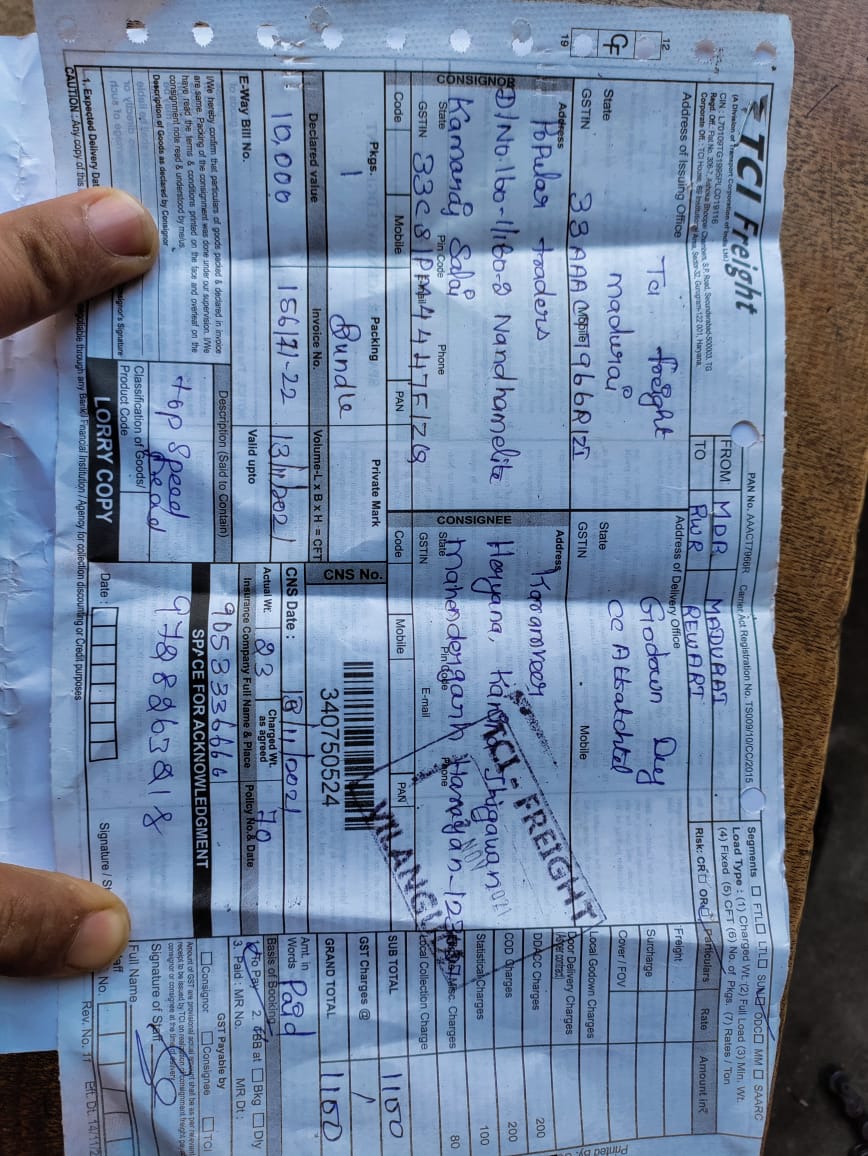 TCI Freight
(A Division of Transport Corporation of India Ltd.)
CIN : L70109TG1995PLC019116
PAN No. AAACT7966R Carrier Act Registration No. TS009/10/CC/2015
Segments FTL LTL SUN ODC MM SAARC
Load Type : (1) Charged Wt. (2) Full Load (3) Min. Wt.
(4) Fixed (5) CFT (6) No. of Pkgs. (7) Rates / Ton
FROM MDR MADURAI
TO RWR REWARI
Risk: CR OR
Particulars Rate Amount in ₹
Address of Issuing Office
Tci freight
madurai
State
GSTIN 33AAA 7966R1ZI
Mobile
Address of Delivery Office
Godown Dey
CC Attatchted
State
GSTIN Mobile
CONSIGNOR
Address Popular traders
D/No.160-1/160-9 Nandhamelite
Kamaraj Salai
State Pin Code Phone
GSTIN
Code Mobile PAN
CONSIGNEE
Address
Haryana,
Mahendergarh Harayan-12
State Pin Code Phone
GSTIN E-mail
Code Mobile PAN
TCI - FREIGHT
Freight
Surcharge
Cover / FOV
Local Godown Charges
Door Delivery Charges
DDACC Charges 200
COD Charges 200
Statistical Charges 100
Misc. Charges 80
Local Collection Charge
SUB TOTAL 1100
GST Charges @
GRAND TOTAL 1100
Pkgs. Packing Private Mark
1 Bundle
Declared value Invoice No. Volume-L x B x H = CFT
10,000 156/21-22 13/11/2021
E-Way Bill No. Valid upto
CNS No.
340750524
CNS Date :
Actual Wt. 23 Charged Wt. as agreed 70
Insurance Company Full Name & Place Policy No. & Date
9053336666
SPACE FOR ACKNOWLEDGMENT
9788263218
Date :
Amt. in Words Paid
Basis of Booking
1. To Pay 2. TBB at Bkg Dly
3. Paid : MR No. MR Dt :
GST Payable by
Consignor Consignee TCI
Signature of Staff
Full Name
I/We hereby confirm that particulars of goods packed & declared in invoice
are same. Packing of the consignment was done under our supervision. I/We
have read the terms & conditions printed on the face and overleaf on the
consignment note read & understood by me/us.
Description of Goods as declared by Consignor
Description (Said to Contain)
top speed
Classification of Goods/
Product Code
LORRY COPY
1. Expected Delivery Dat
CAUTION : Any copy of this
negotiable through any Bank/ Financial Institution / Agency for collection discounting or Credit purposes
Rev. No. 11 Eff. Dt. 14/11/2